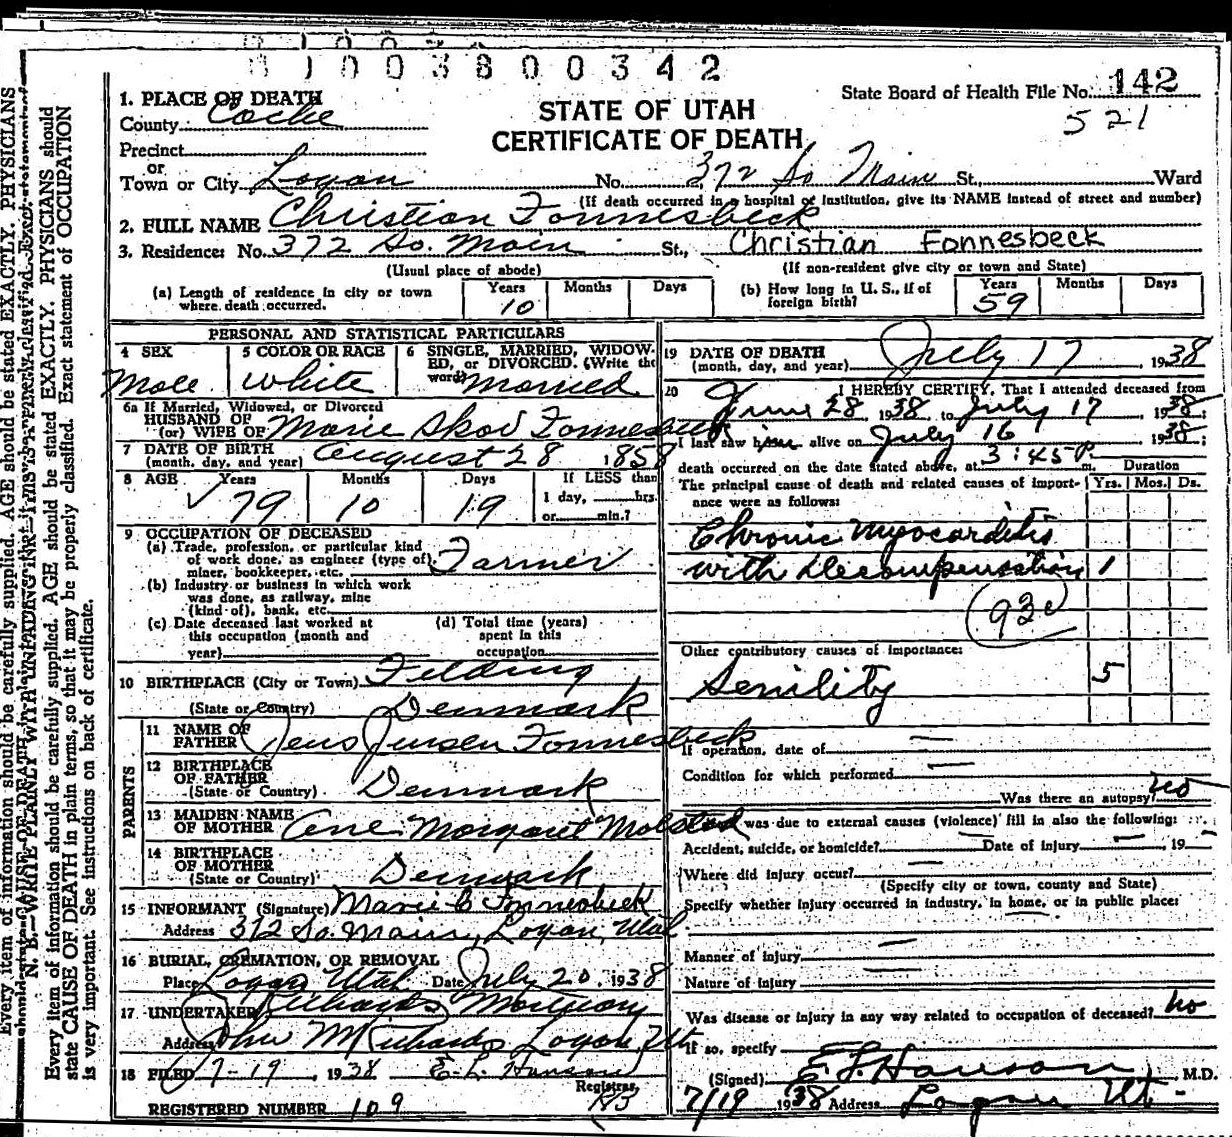 0 1 0 0 3 8 0 0 3 4 2
State Board of Health File No. 142
521
STATE OF UTAH
CERTIFICATE OF DEATH
1. PLACE OF DEATH
County Cache
Precinct
or
Town or City Logan No. 372 So Main St., Ward
(If death occurred in a hospital or institution, give its NAME instead of street and number)
2. FULL NAME Christian Fonnesbeck
3. Residence: No. 372 So. Main St., Christian Fonnesbeck
(Usual place of abode) (If non-resident give city or town and State)
(a) Length of residence in city or town where death occurred. Years 10 Months Days
(b) How long in U. S., if of foreign birth? Years 59 Months Days
PERSONAL AND STATISTICAL PARTICULARS
4 SEX Male
5 COLOR OR RACE White
6 SINGLE, MARRIED, WIDOWED, or DIVORCED. (Write the word) Married
6a If Married, Widowed, or Divorced
HUSBAND OF
(or) WIFE OF Marie Skov Fonnesbeck
7 DATE OF BIRTH
(month, day, and year) August 28 1858
8 AGE Years 79 Months 10 Days 19
If LESS than
1 day, hrs.
or min.?
9 OCCUPATION OF DECEASED
(a) Trade, profession, or particular kind
of work done, as engineer (type of),
miner, bookkeeper, etc. Farmer
(b) Industry or business in which work
was done, as railway, mine
(kind of), bank, etc.
(c) Date deceased last worked at
this occupation (month and
year)
(d) Total time (years)
spent in this
occupation
10 BIRTHPLACE (City or Town) Felding
(State or Country) Denmark
PARENTS
11 NAME OF
FATHER Jens Jensen Fonnesbeck
12 BIRTHPLACE
OF FATHER
(State or Country) Denmark
13 MAIDEN NAME
OF MOTHER Ane Margaret
14 BIRTHPLACE
OF MOTHER
(State or Country) Denmark
15 INFORMANT (Signature) Marie C Fonnesbeck
Address 372 So. Main, Logan, Utah
16 BURIAL, CREMATION, OR REMOVAL
Place Logan Utah Date July 20, 1938
17 UNDERTAKER Richards Mortuary
Address John M Richards Logan Utah
18 FILED 7-19, 1938 E. L. Hanson
Registrar
REGISTERED NUMBER 109
19 DATE OF DEATH
(month, day, and year) July 17 1938
20 I HEREBY CERTIFY, That I attended deceased from
June 28 1938 to July 17, 1938;
I last saw him alive on July 16 1938;
death occurred on the date stated above, at 3:45 P. m. Duration
The principal cause of death and related causes of importance were as follows: Yrs. Mos. Ds.
Chronic Myocarditis
with Decompensation 1
93c
Other contributory causes of importance:
Senility 5
If operation, date of —
Condition for which performed —
Was there an autopsy? no
was due to external causes (violence) fill in also the following:
Accident, suicide, or homicide? — Date of injury —, 19
Where did injury occur? —
(Specify city or town, county and State)
Specify whether injury occurred in industry, in home, or in public place:
Manner of injury —
Nature of injury —
Was disease or injury in any way related to occupation of deceased? no
If so, specify —
(Signed) E. L. Hanson, M.D.
7/19 1938 Address Logan Ut.
Every item of information should be carefully supplied. AGE should be stated EXACTLY. PHYSICIANS
N. B.—WRITE PLAINLY WITH UNFADING INK—THIS IS A PERMANENT
Every item of information should be carefully supplied. AGE should be stated EXACTLY. PHYSICIANS should
state CAUSE OF DEATH in plain terms, so that it may be properly classified. Exact statement of OCCUPATION
is very important. See instructions on back of certificate.